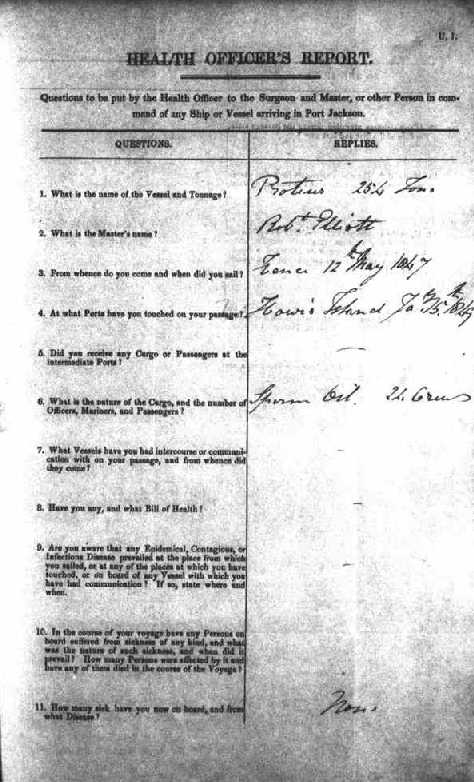 U. 1.
HEALTH OFFICER'S REPORT.
Questions to be put by the Health Officer to the Surgeon and Master, or other Person in com-
mand of any Ship or Vessel arriving in Port Jackson.
QUESTIONS. REPLIES.
1. What is the name of the Vessel and Tonnage? Proteus 254 Tons
2. What is the Master's name? Robt. Elliott
3. From whence do you come and when did you sail? 12th May 1847
4. At what Ports have you touched on your passage? Howis Island
5. Did you receive any Cargo or Passengers at the
intermediate Ports? —
6. What is the nature of the Cargo, and the number of
Officers, Mariners, and Passengers? Sperm Oil. 24 Crews
7. What Vessels have you had intercourse or communi-
cation with on your passage, and from whence did
they come? –
8. Have you any, and what Bill of Health? –
9. Are you aware that any Epidemical, Contagious, or
Infectious Disease prevailed at the place from which
you sailed, or at any of the places at which you have
touched, or on board of any Vessel with which you
have had communication? If so, state where and
when. –
10. In the course of your voyage have any Persons on
board suffered from sickness of any kind, and what
was the nature of such sickness, and when did it
prevail? How many Persons were affected by it and
have any of them died in the course of the Voyage? –
11. How many sick have you now on board, and from
what Disease? None